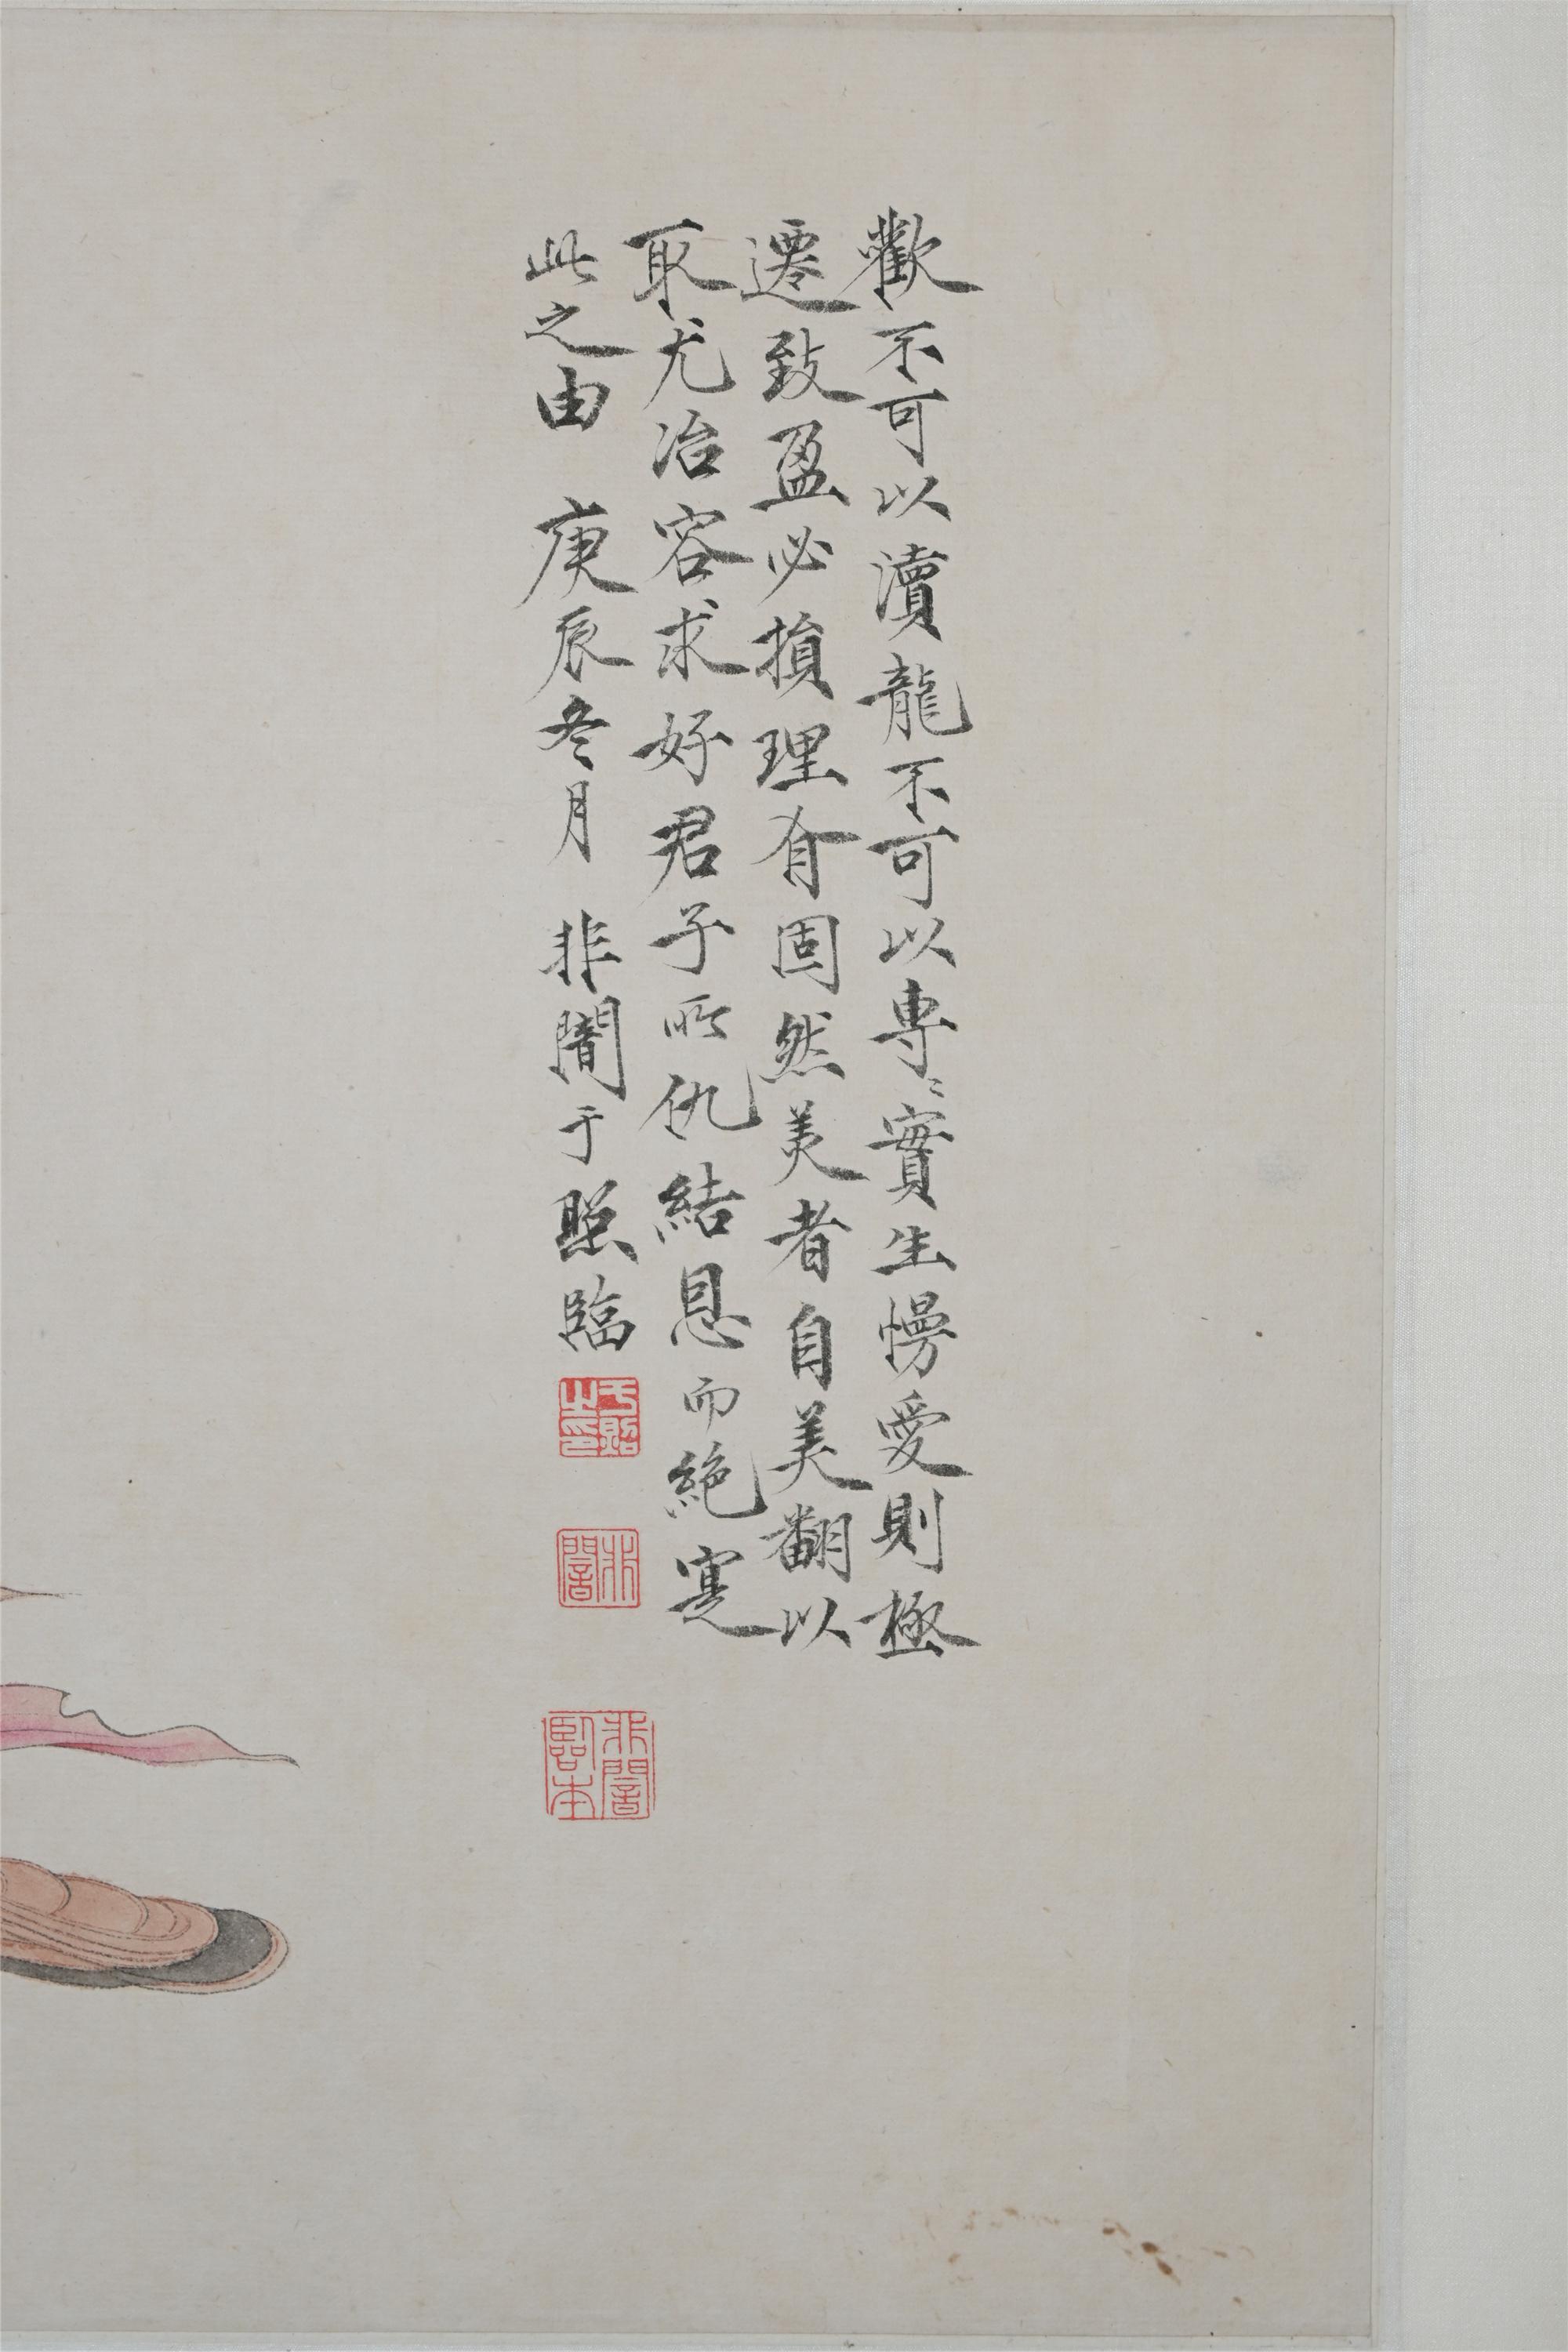 歡不可以瀆龍不可以專〻實生慢愛則極
遷致盈必損理有固然美者自美翻以
取尤冶容求好君子所仇結恩而絕寔
此之由　庚辰冬月　非闇于照臨
于照之印
非闇
非闇臨本